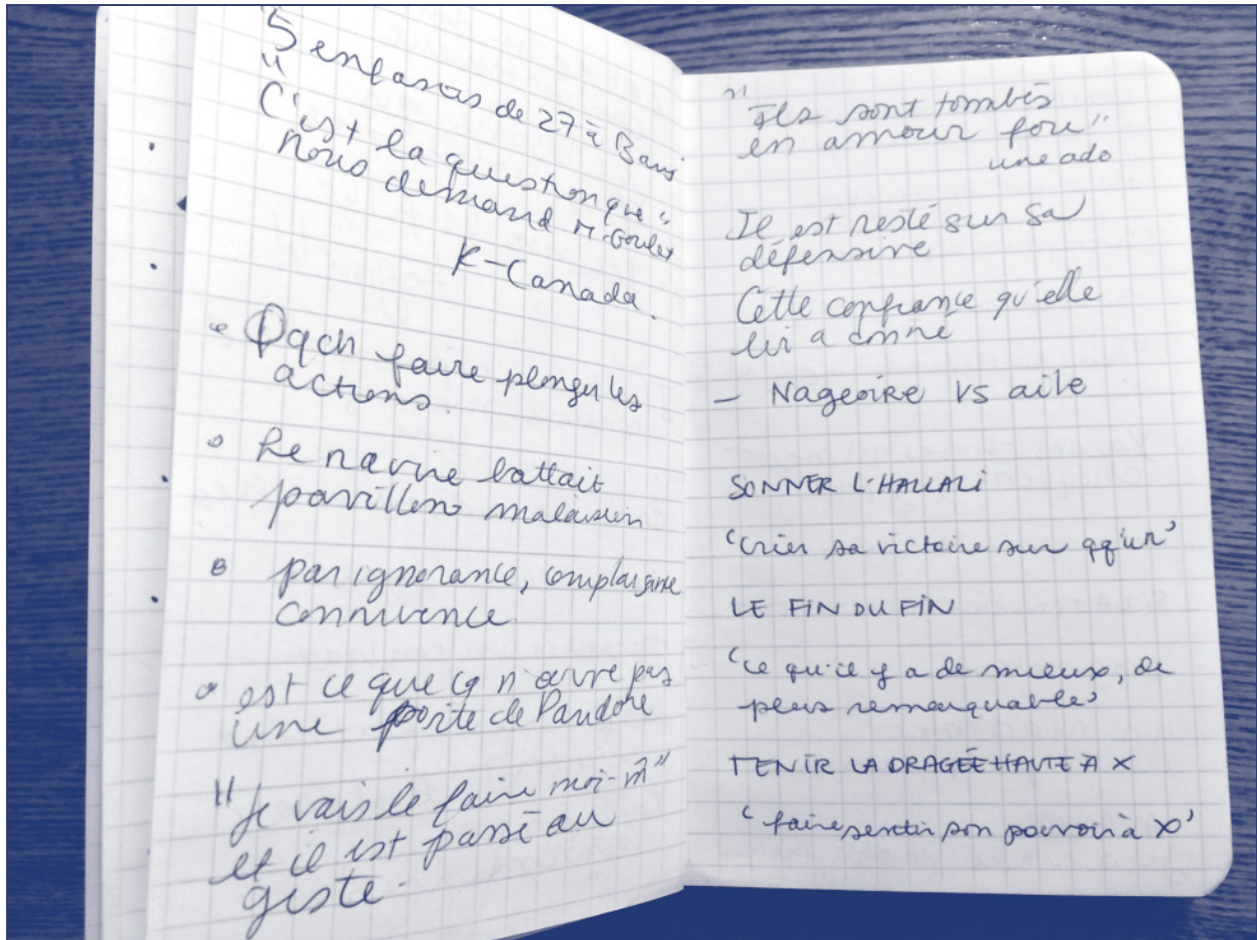 "5 enfants de 27 à Bang
"C'est la question que"
nous demand M. Goulet
K-Canada.
Qqch faire plonger les
actions.
Le navire battait
pavillon malaisien
par ignorance, complaisance
connivence
est ce que ça n'ouvre pas
une porte de Pandore
"Je vais le faire moi-m̂"
et il est passé au
geste.
"Ils sont tombés
en amour fou"
une ado
Il est resté sur sa
défensive
Cette confiance qu'elle
lui a donné
- Nageoire vs aile
SONNER L'HALLALI
'crier sa victoire sur qq'un'
LE FIN DU FIN
'ce qu'il y a de mieux, de
plus remarquable'
TENIR LA DRAGÉE HAUTE À X
'faire sentir son pouvoir à X'